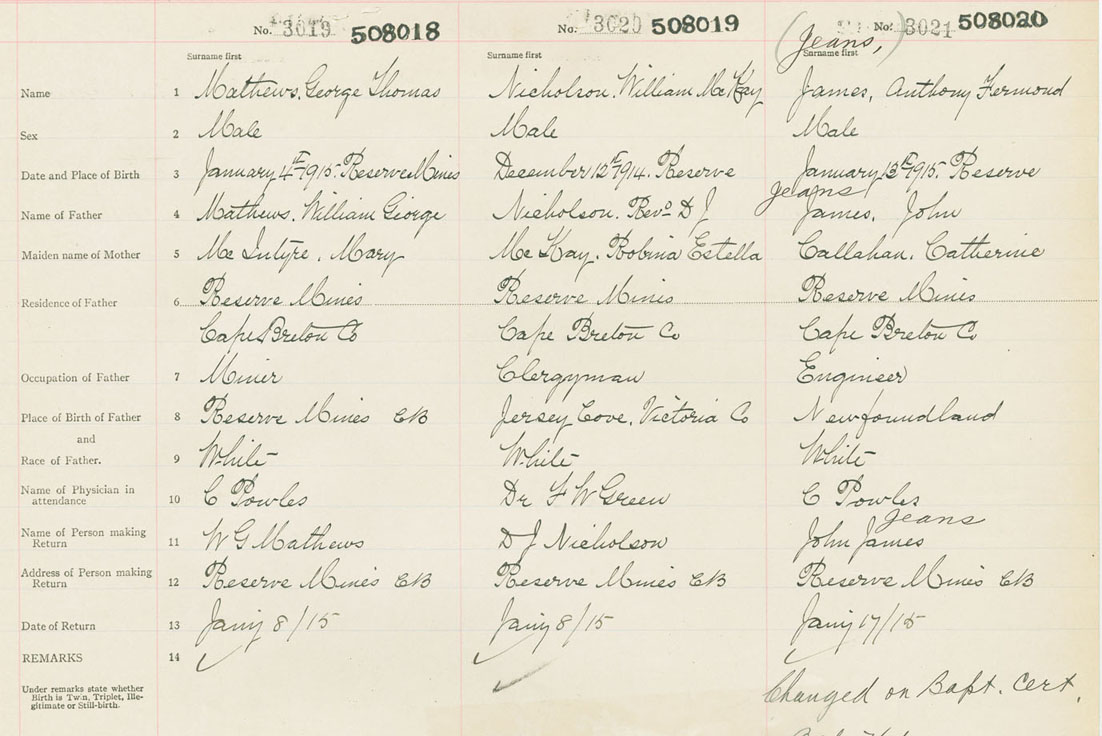 No. 3019 508018 No. 3020 508019 No. 3021 508020
(Jeans,)
Surname first Surname first Surname first
Name 1 Mathews, George Thomas Nicholson, William McKay James, Anthony Fermond
Sex 2 Male Male Male
Date and Place of Birth 3 January 4th 1915. Reserve Mines December 12th 1914. Reserve January 13th 1915. Reserve
Jeans
Name of Father 4 Mathews, William George Nicholson, Revd D J James, John
Maiden name of Mother 5 Mc Intyre, Mary Mc Kay, Robina Estella Callahan, Catherine
Residence of Father 6 Reserve Mines Reserve Mines Reserve Mines
Cape Breton Co Cape Breton Co Cape Breton Co
Occupation of Father 7 Miner Clergyman Engineer
Place of Birth of Father 8 Reserve Mines CB Jersey Cove, Victoria Co Newfoundland
and
Race of Father. 9 White White White
Name of Physician in attendance 10 C Powles Dr F W Green C Powles
Jeans
Name of Person making Return 11 W G Mathews D J Nicholson John James
Address of Person making Return 12 Reserve Mines CB Reserve Mines CB Reserve Mines CB
Date of Return 13 Jany 8/15 Jany 8/15 Jany 17/15
REMARKS 14
Under remarks state whether
Birth is Twin, Triplet, Ille-
gitimate or Still-birth.
Changed on Bapt. Cert.